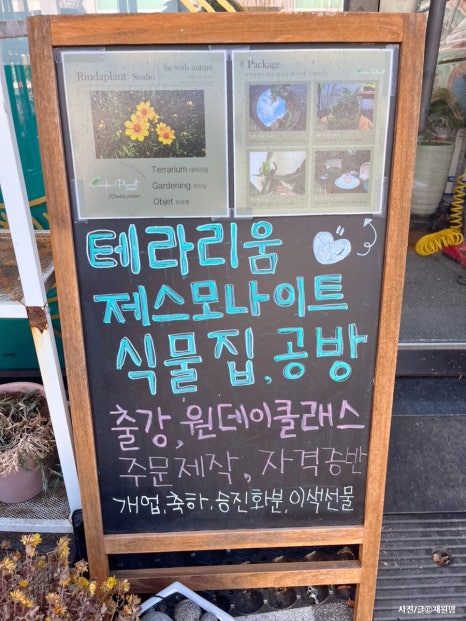 be with nature
Rindaplant Studio
Terrarium 테라리움
Gardening 가드닝
Objet 오브제
# Package
테라리움
제스모나이트
식물집, 공방
출강, 원데이클래스
주문제작, 자격증반
개업, 축하, 승진화분, 이색선물
사진/글ⓒ제원맘